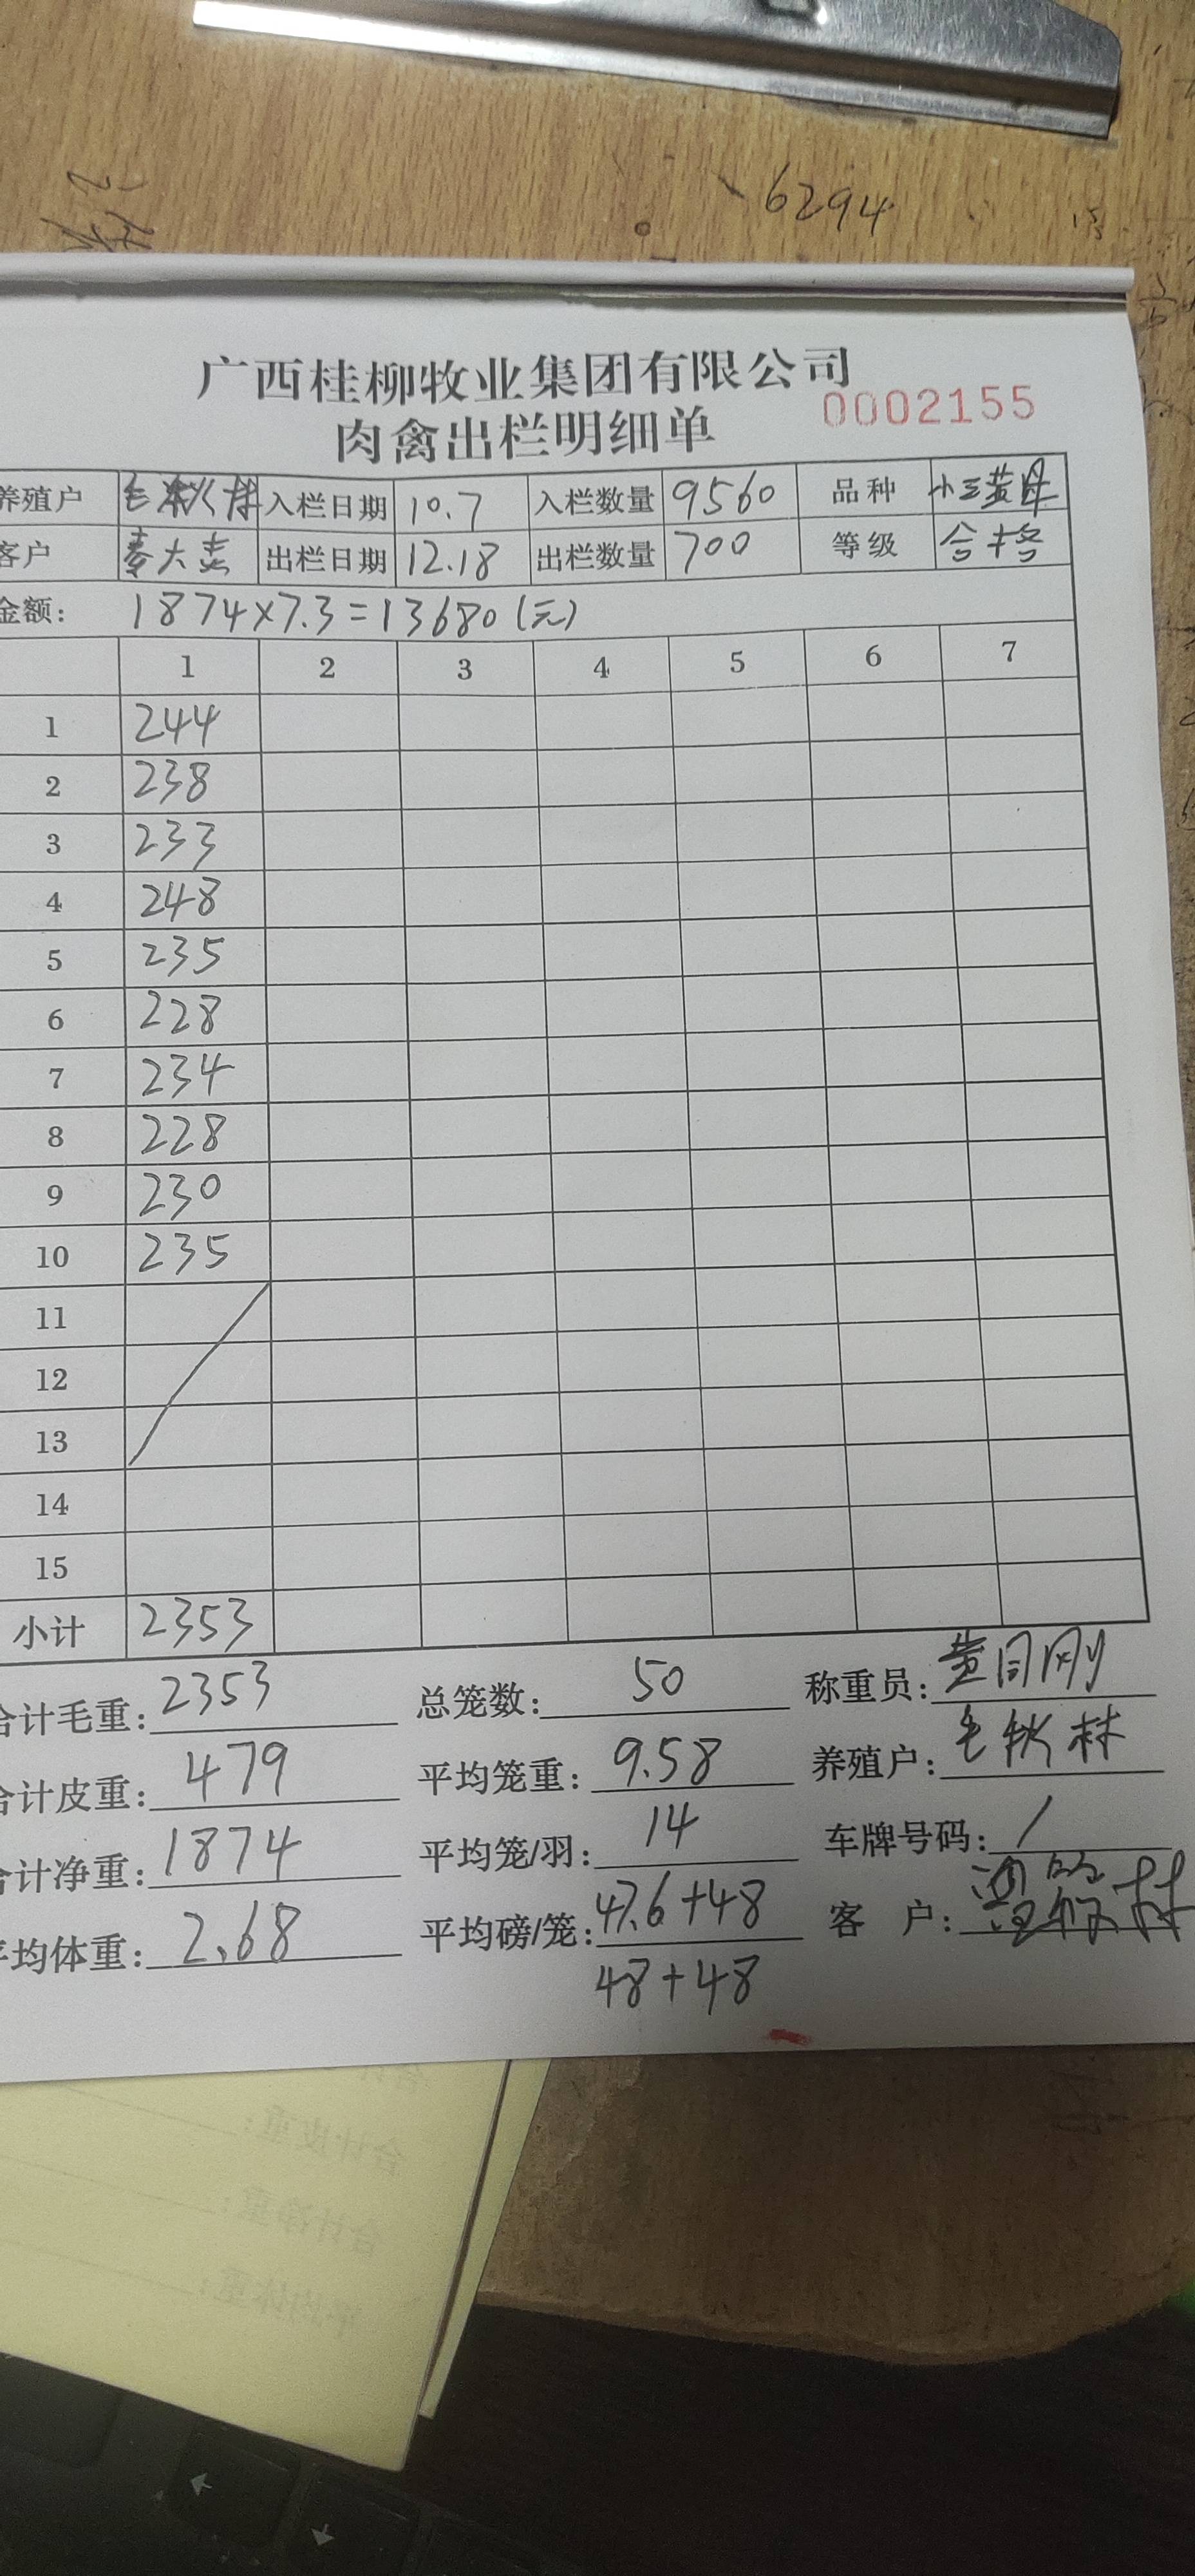 6294
广西桂柳牧业集团有限公司
肉禽出栏明细单 0002155
养殖户 毛秋林 入栏日期 10.7 入栏数量 9560 品种 小三黄母
客户 秦大志 出栏日期 12.18 出栏数量 700 等级 合格
金额: 1874×7.3=13680(元)
1 2 3 4 5 6 7
1 244
2 238
3 233
4 248
5 235
6 228
7 234
8 228
9 230
10 235
11
12
13
14
15
小计 2353
合计毛重: 2353 总笼数: 50 称重员: 黄同刚
合计皮重: 479 平均笼重: 9.58 养殖户: 毛秋林
合计净重: 1874 平均笼/羽: 14 车牌号码: /
平均体重: 2.68 平均磅/笼: 47.6+48 客 户:
48+48
合计皮重:
合计净重:
平均体重: